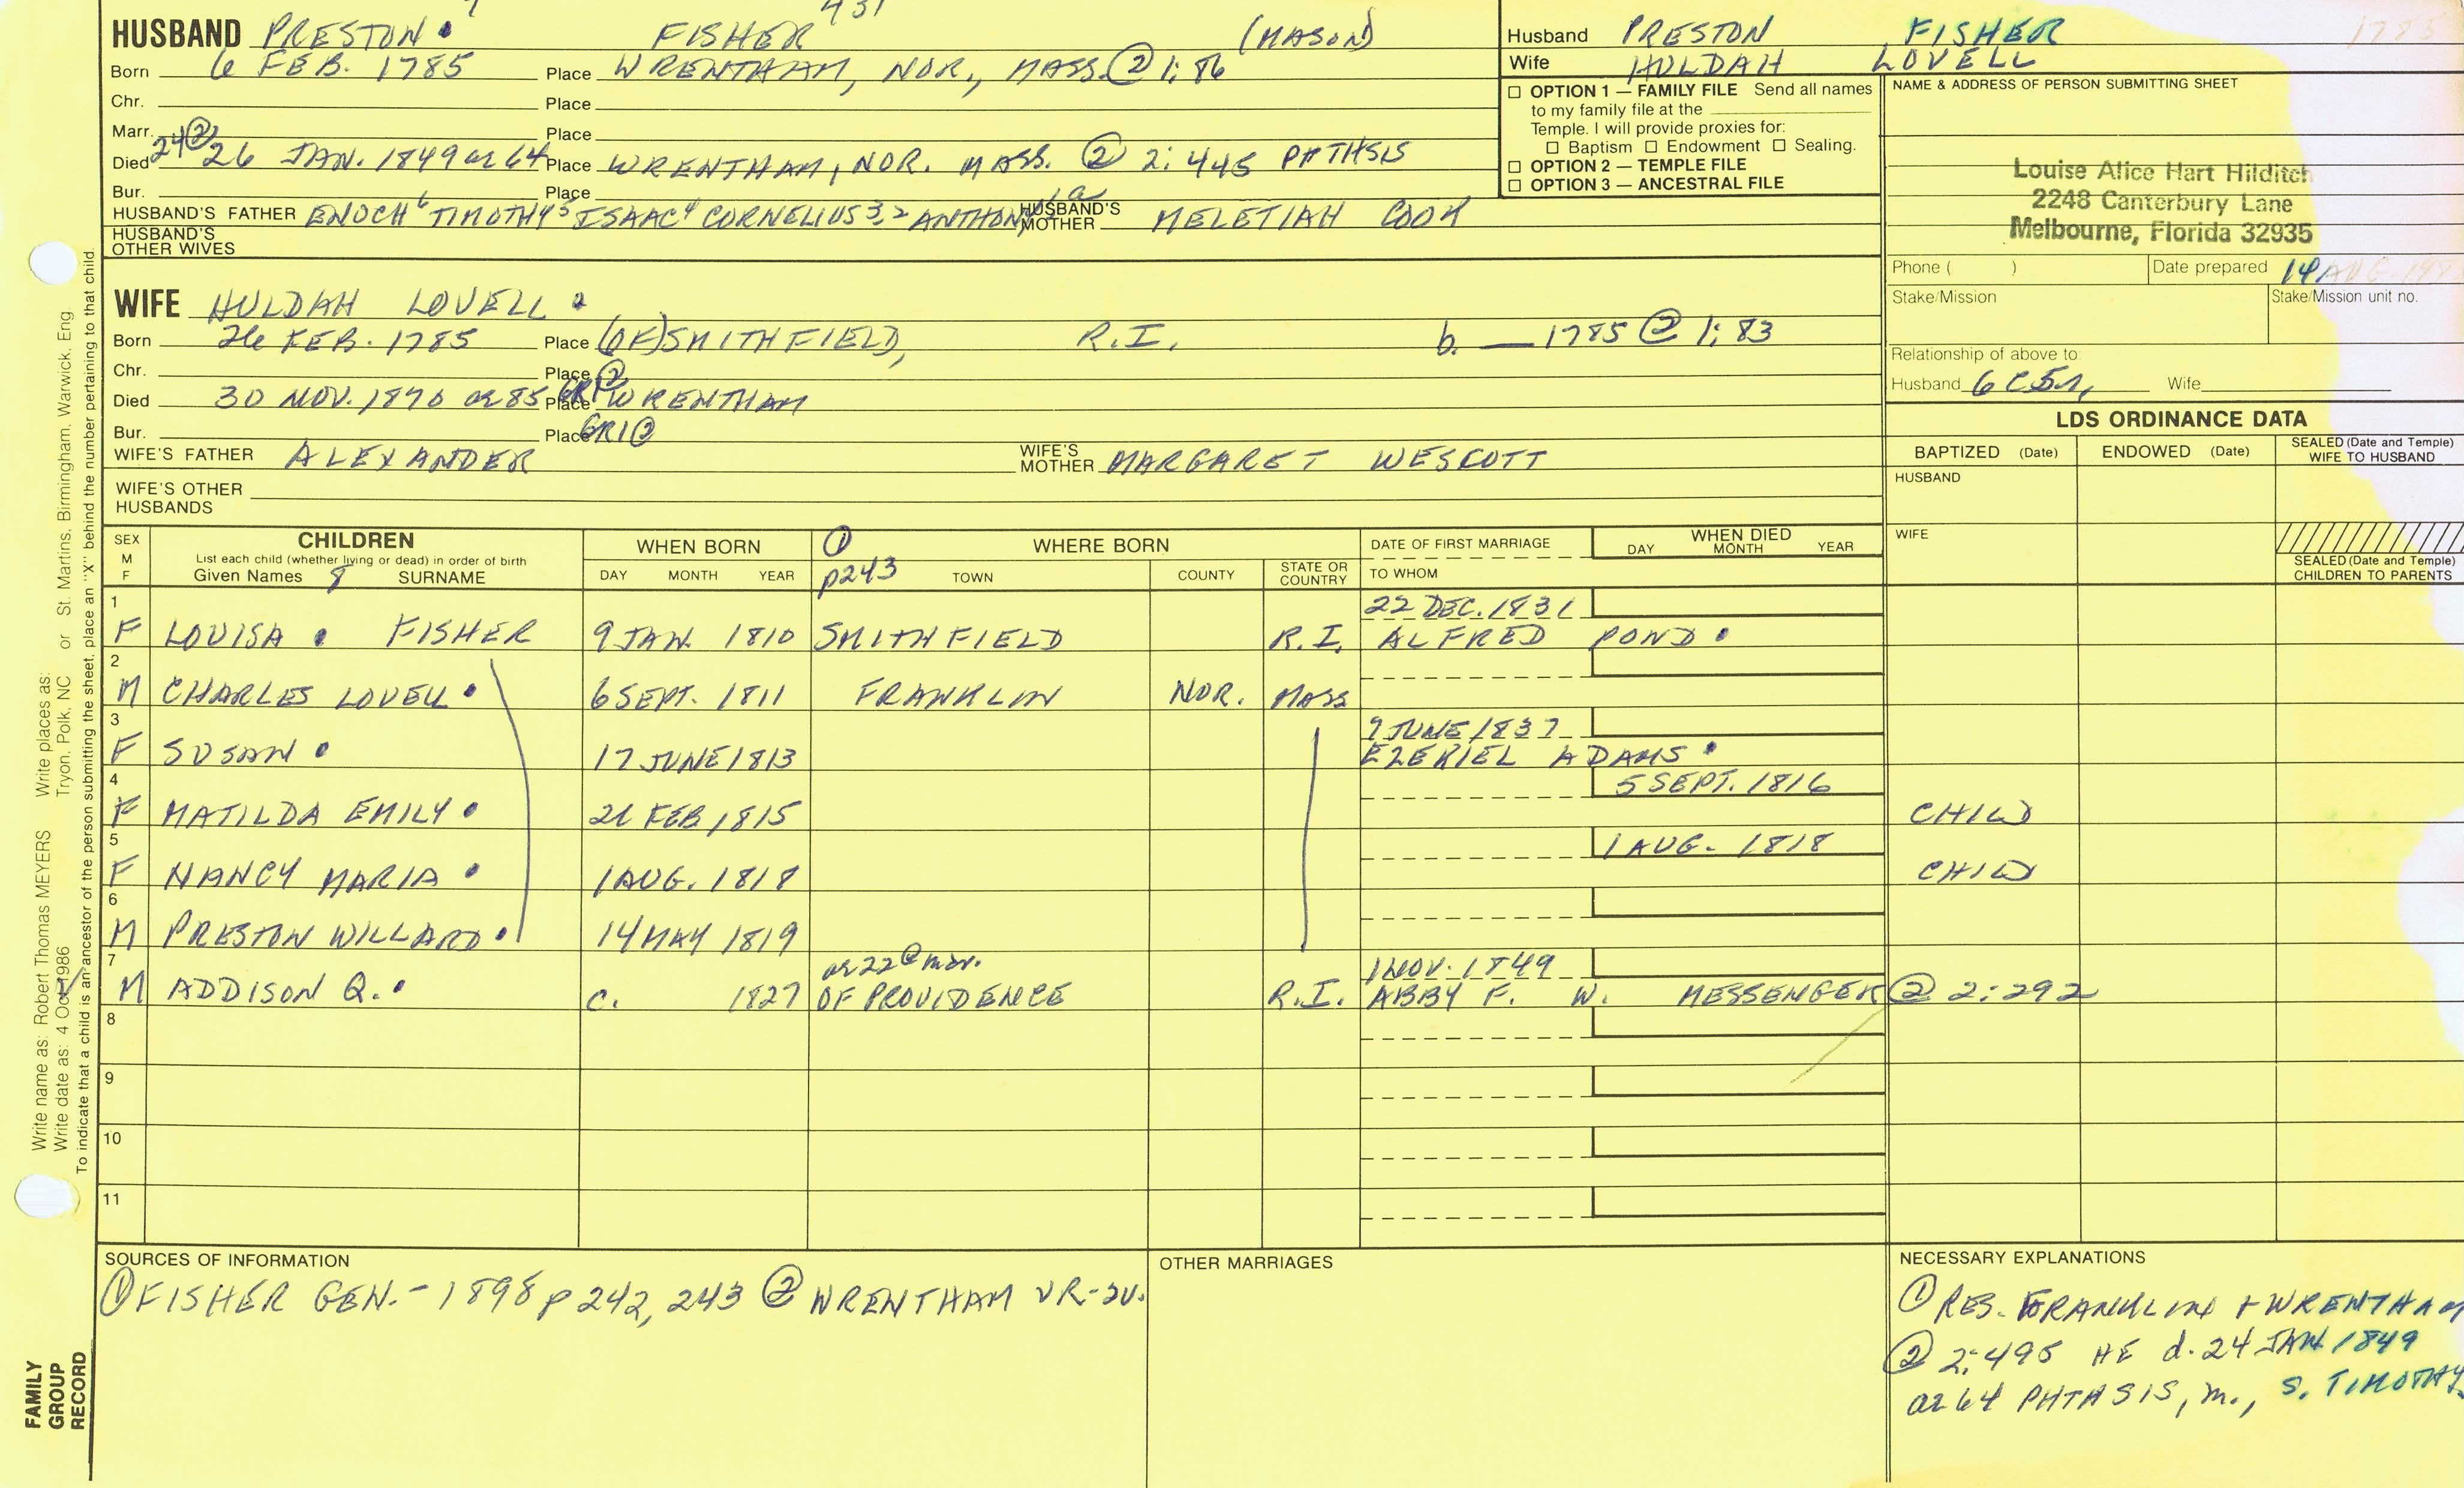 431
HUSBAND PRESTON FISHER (MASON)
Born 6 FEB. 1785 Place WRENTHAM, NOR., MASS. ② 1:86
Chr. Place
Marr. Place
Died 24② 26 JAN. 1849 ae 64 Place WRENTHAM, NOR. MASS. ② 2:445 PHTHSIS
Bur. Place
HUSBAND'S FATHER ENOCH⁶ TIMOTHY⁵ ISAAC⁴ CORNELIUS³,² ANTHONY HUSBAND'S MOTHER MELETIAH COOK
HUSBAND'S OTHER WIVES
Husband PRESTON FISHER
Wife HULDAH LOVELL
1785
☐ OPTION 1 — FAMILY FILE Send all names
to my family file at the
Temple. I will provide proxies for:
☐ Baptism ☐ Endowment ☐ Sealing.
☐ OPTION 2 — TEMPLE FILE
☐ OPTION 3 — ANCESTRAL FILE
NAME & ADDRESS OF PERSON SUBMITTING SHEET
Louise Alice Hart Hilditch
2248 Canterbury Lane
Melbourne, Florida 32935
Phone ( ) Date prepared 14 AUG. 199
Stake/Mission Stake/Mission unit no.
Relationship of above to:
Husband 6C5r, Wife
WIFE HULDAH LOVELL
Born 26 FEB. 1785 Place (OF) SMITHFIELD, R.I. b. — 1785 ② 1:83
Chr. Place
Died 30 NOV. 1870 ae 85 GR1② Place WRENTHAM
Bur. Place GR1②
WIFE'S FATHER ALEXANDER WIFE'S MOTHER MARGARET WESCOTT
WIFE'S OTHER HUSBANDS
LDS ORDINANCE DATA
BAPTIZED (Date) ENDOWED (Date) SEALED (Date and Temple) WIFE TO HUSBAND
HUSBAND
WIFE
SEALED (Date and Temple) CHILDREN TO PARENTS
SEX M F CHILDREN List each child (whether living or dead) in order of birth Given Names 8 SURNAME
WHEN BORN DAY MONTH YEAR
① p243 WHERE BORN TOWN COUNTY STATE OR COUNTRY
DATE OF FIRST MARRIAGE TO WHOM
WHEN DIED DAY MONTH YEAR
1 22 DEC. 1831
F LOUISA FISHER 9 JAN. 1810 SMITHFIELD R.I. ALFRED POND
2
M CHARLES LOVELL 6 SEPT. 1811 FRANKLIN NOR. MASS
3 9 JUNE 1837
F SUSAN 17 JUNE 1813 EZEKIEL ADAMS
4 5 SEPT. 1816
F MATILDA EMILY 21 FEB 1815 CHILD
5 1 AUG. 1818
F NANCY MARIA 1 AUG. 1818 CHILD
6
M PRESTON WILLARD 14 MAY 1819
7 ae 22 @ mar. 1 NOV. 1849
M ADDISON Q. c. 1827 OF PROVIDENCE R.I. ABBY F. W. MESSENGER ② 2:292
8
9
10
11
SOURCES OF INFORMATION
① FISHER GEN.- 1898 p 242, 243 ② WRENTHAM VR-2V.
OTHER MARRIAGES
NECESSARY EXPLANATIONS
① RES. FRANKLIN + WRENTHAM
② 2:495 HE d. 24 JAN. 1849
ae 64 PHTASIS, m., S. TIMOTHY
Write name as: Robert Thomas MEYERS Write places as:
Write date as: 4 Oct 1986 Tryon, Polk, NC or St. Martins, Birmingham, Warwick, Eng.
To indicate that a child is an ancestor of the person submitting the sheet, place an "X" behind the number pertaining to that child.
FAMILY GROUP RECORD